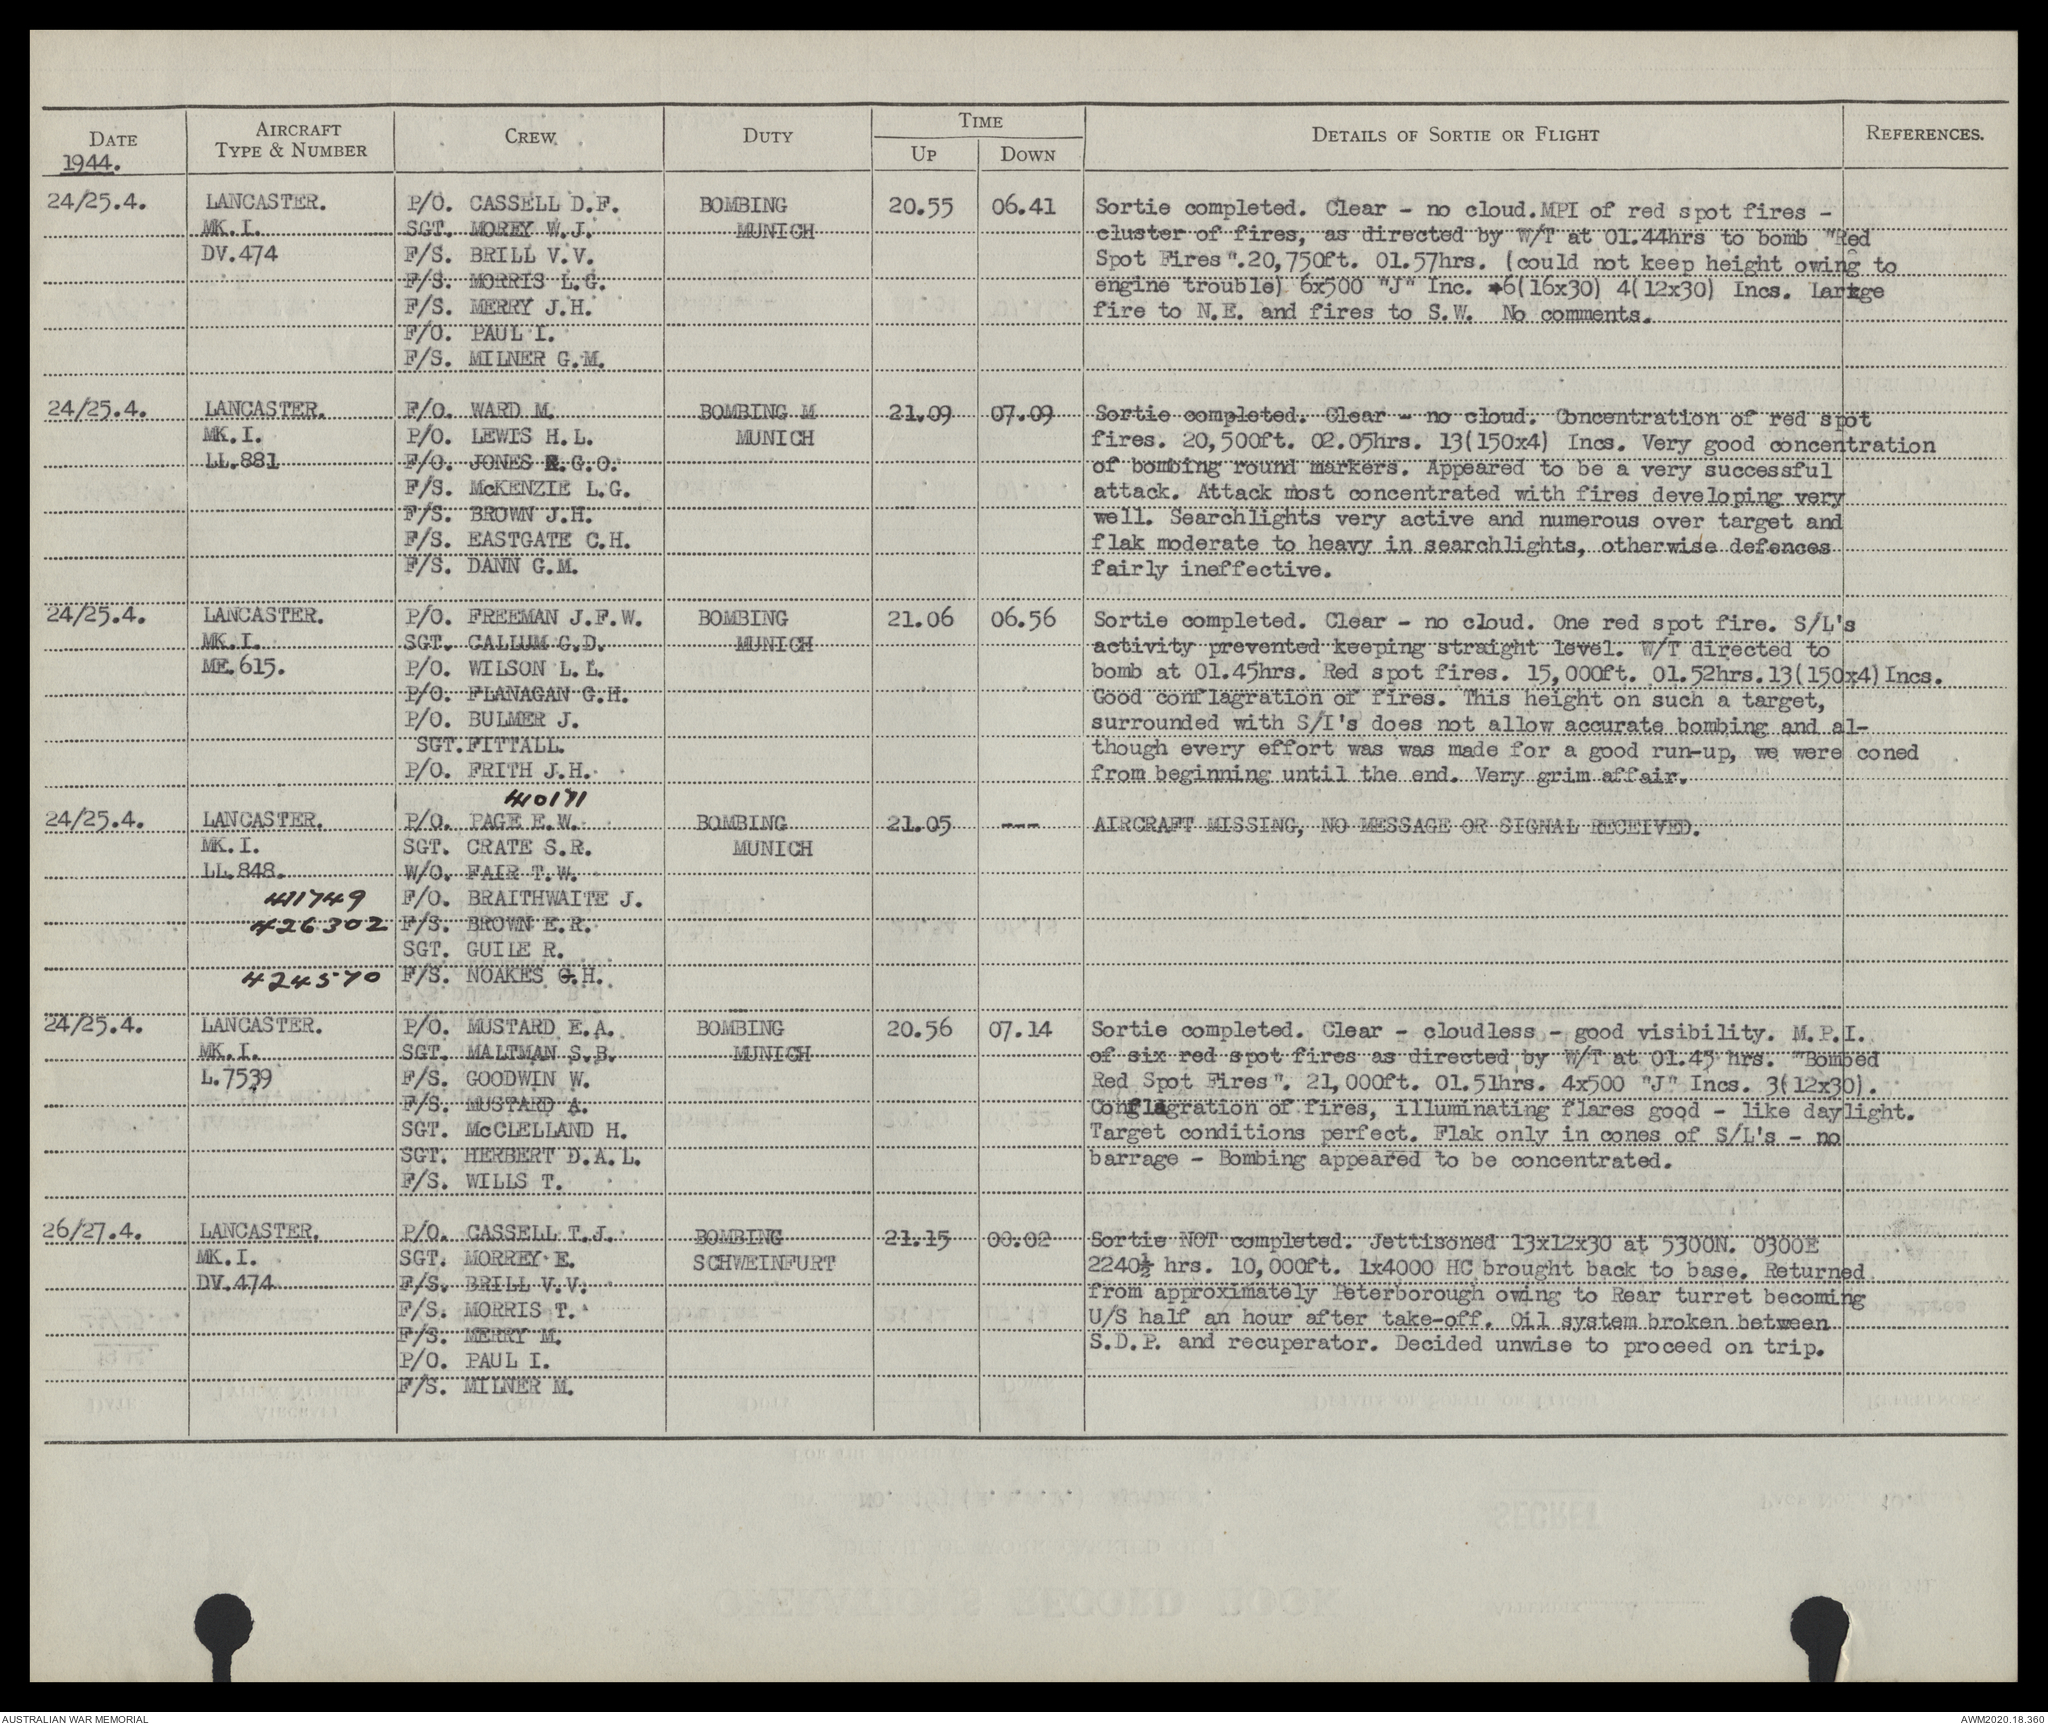 DATE
1944.
AIRCRAFT
TYPE & NUMBER
CREW
DUTY
TIME
UP
DOWN
DETAILS OF SORTIE OR FLIGHT
REFERENCES.
24/25.4.
LANCASTER.
MK.I.
DV.474
P/O. CASSELL D.F.
SGT. MOREY W.J.
F/S. BRILL V.V.
F/S. MORRIS L.G.
F/S. MERRY J.H.
F/O. PAUL I.
F/S. MILNER G.M.
BOMBING
MUNICH
20.55
06.41
Sortie completed. Clear - no cloud.MPI of red spot fires -
cluster of fires, as directed by W/T at 01.44hrs to bomb "Red
Spot Fires".20,750ft. 01.57hrs. (could not keep height owing to
engine trouble) 6x500 "J" Inc. 6(16x30) 4(12x30) Incs. Large
fire to N.E. and fires to S.W. No comments.
24/25.4.
LANCASTER.
MK.I.
LL.881
F/O. WARD M.
P/O. LEWIS H.L.
F/O. JONES R.G.O.
F/S. McKENZIE L.G.
F/S. BROWN J.H.
F/S. EASTGATE C.H.
F/S. DANN G.M.
BOMBING M
MUNICH
21.09
07.09
Sortie completed. Clear - no cloud. Concentration of red spot
fires. 20,500ft. 02.05hrs. 13(150x4) Incs. Very good concentration
of bombing round markers. Appeared to be a very successful
attack. Attack most concentrated with fires developing very
well. Searchlights very active and numerous over target and
flak moderate to heavy in searchlights, otherwise defences
fairly ineffective.
24/25.4.
LANCASTER.
MK.I.
ME.615.
P/O. FREEMAN J.F.W.
SGT. CALLUM G.D.
P/O. WILSON L.L.
P/O. FLANAGAN G.H.
P/O. BULMER J.
SGT.FITTALL.
P/O. FRITH J.H.
BOMBING
MUNICH
21.06
06.56
Sortie completed. Clear - no cloud. One red spot fire. S/L's
activity prevented keeping straight level. W/T directed to
bomb at 01.45hrs. Red spot fires. 15,000ft. 01.52hrs.13(150x4)Incs.
Good conflagration of fires. This height on such a target,
surrounded with S/I's does not allow accurate bombing and al-
though every effort was was made for a good run-up, we were coned
from beginning until the end. Very grim affair.
24/25.4.
LANCASTER.
MK.I.
LL.848.
411749
426302
424570
410171
P/O. PAGE E.W.
SGT. CRATE S.R.
W/O. FAIR T.W.
F/O. BRAITHWAITE J.
F/S. BROWN E.R.
SGT. GUILE R.
F/S. NOAKES G.H.
BOMBING
MUNICH
21.05
---
AIRCRAFT MISSING, NO MESSAGE OR SIGNAL RECEIVED.
24/25.4.
LANCASTER.
MK.I.
L.7539
P/O. MUSTARD E.A.
SGT. MALTMAN S.B.
F/S. GOODWIN W.
F/S. MUSTARD A.
SGT. McCLELLAND H.
SGT. HERBERT D.A.L.
F/S. WILLS T.
BOMBING
MUNICH
20.56
07.14
Sortie completed. Clear - cloudless - good visibility. M.P.I.
of six red spot fires as directed by W/T at 01.45 hrs. "Bombed
Red Spot Fires". 21,000ft. 01.51hrs. 4x500 "J" Incs. 3(12x30).
Conflagration of fires, illuminating flares good - like daylight.
Target conditions perfect. Flak only in cones of S/L's - no
barrage - Bombing appeared to be concentrated.
26/27.4.
LANCASTER.
MK.I.
DV.474
P/O. CASSELL T.J.
SGT. MORREY E.
F/S. BRILL V.V.
F/S. MORRIS T.
F/S. MERRY M.
P/O. PAUL I.
F/S. MILNER M.
BOMBING
SCHWEINFURT
21.15
00.02
Sortie NOT completed. Jettisoned 13x12x30 at 5300N. 0300E
2240½ hrs. 10,000ft. 1x4000 HC brought back to base. Returned
from approximately Peterborough owing to Rear turret becoming
U/S half an hour after take-off. Oil system broken between
S.D.P. and recuperator. Decided unwise to proceed on trip.
AUSTRALIAN WAR MEMORIAL
AWM2020.18.360